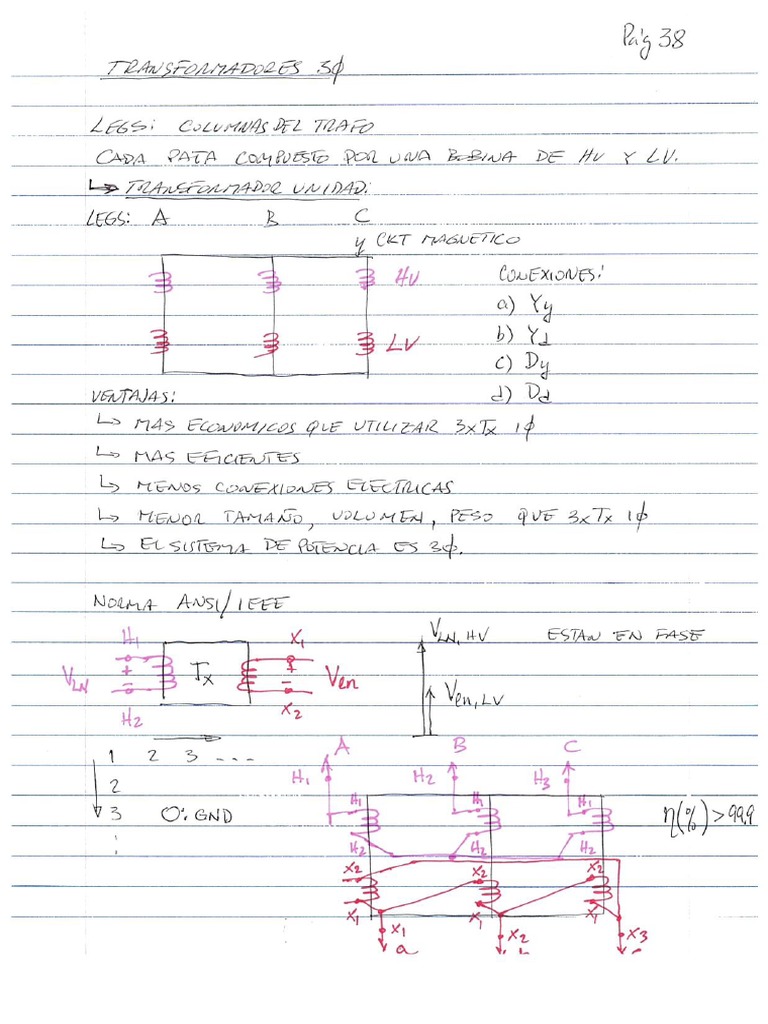 Pág 38
TRANSFORMADORES 3∅
LEGS: COLUMNAS DEL TRAFO
CADA PATA COMPUESTO POR UNA BOBINA DE HV Y LV.
↳ TRANSFORMADOR UNIDAD:
LEGS: A B C
y CKT MAGNETICO
HV
CONEXIONES:
a) Yy
b) Yd
LV
c) Dy
d) Dd
VENTAJAS:
↳ MAS ECONOMICOS QUE UTILIZAR 3xTx 1∅
↳ MAS EFICIENTES
↳ MENOS CONEXIONES ELECTRICAS
↳ MENOR TAMAÑO, VOLUMEN, PESO QUE 3xTx 1∅
↳ EL SISTEMA DE POTENCIA ES 3∅.
NORMA ANSI/IEEE
H1 X1 VLN, HV ESTAN EN FASE
VLN + - Tx + - Ven
Ven, LV
H2 X2
1 2 3 ...
2
3 0: GND
A B C
H1 H2 H3
H1 H1 H1
η(%) > 99.9
H2 H2 H2
X2 X2 X2
X1 X1 X1
X1 X2 X3
a b